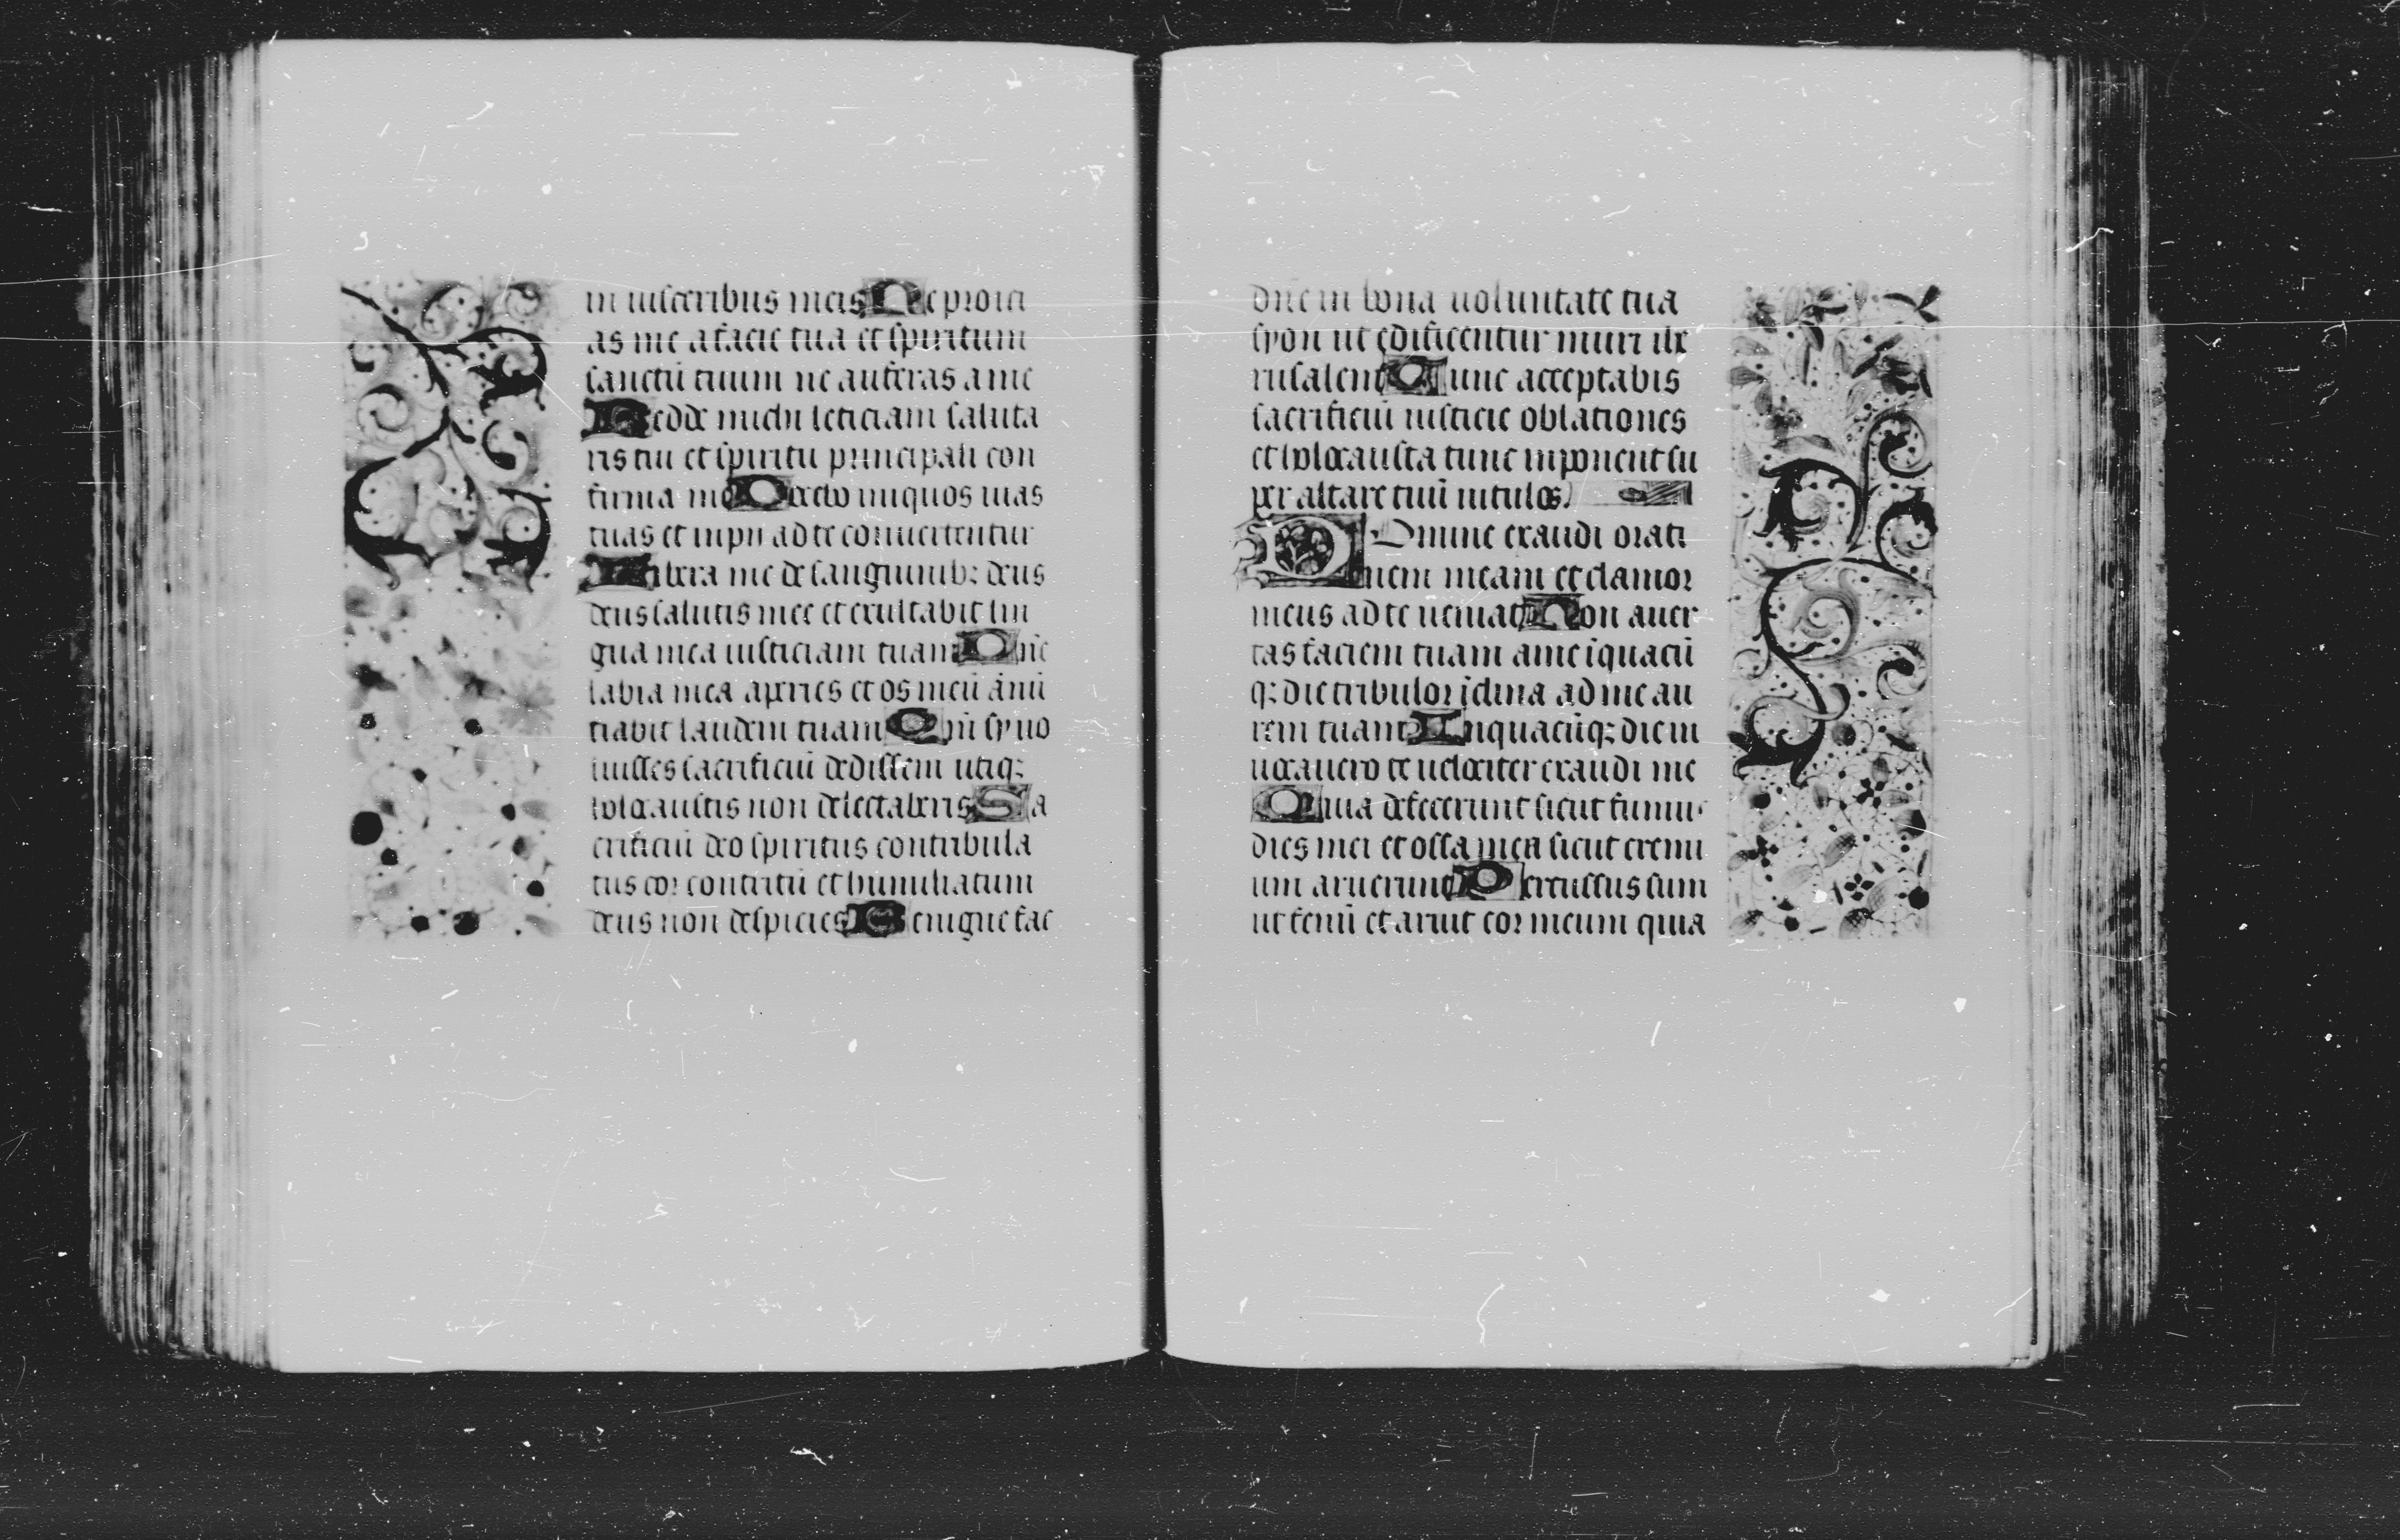 in uisceribus meis Ne proici
as me a facie tua et spiritum
sanctū tuum ne auferas a me
Redde michi leticiam saluta
ris tui et spiritu principali con
firma me Docebo iniquos uias
tuas et inpii ad te conuertentur
Libera me de sanguinibꝫ deus
deus salutis mee et exultabit lin
gua mea iusticiam tuam Dñe
labia mea aperies et os meū ānū
tiabit laudem tuam Qm̄ si uo
luisses sacrificiū dedissem utiqꝫ
holocaustis non delectaberis Sa
crificiū deo spiritus contribula
tus cor contritū et humiliatum
deus non despicies Benigne fac
dñe in bona uoluntate tua
syon ut edificentur muri ihe
rusalem Tunc acceptabis
sacrificiū iusticie oblationes
et holocausta tunc inponent su
per altare tuū uitulos.
Domine exaudi orati
onem meam et clamor
meus ad te ueniat Non auer
tas faciem tuam a me ī quacū
qꝫ die tribulor īclina ad me au
rem tuam In quacūqꝫ die in
uocauero te uelociter exaudi me
Quia defecerunt sicut fumus
dies mei et ossa mea sicut cremi
um aruerunt Percussus sum
ut fenū et aruit cor meum quia